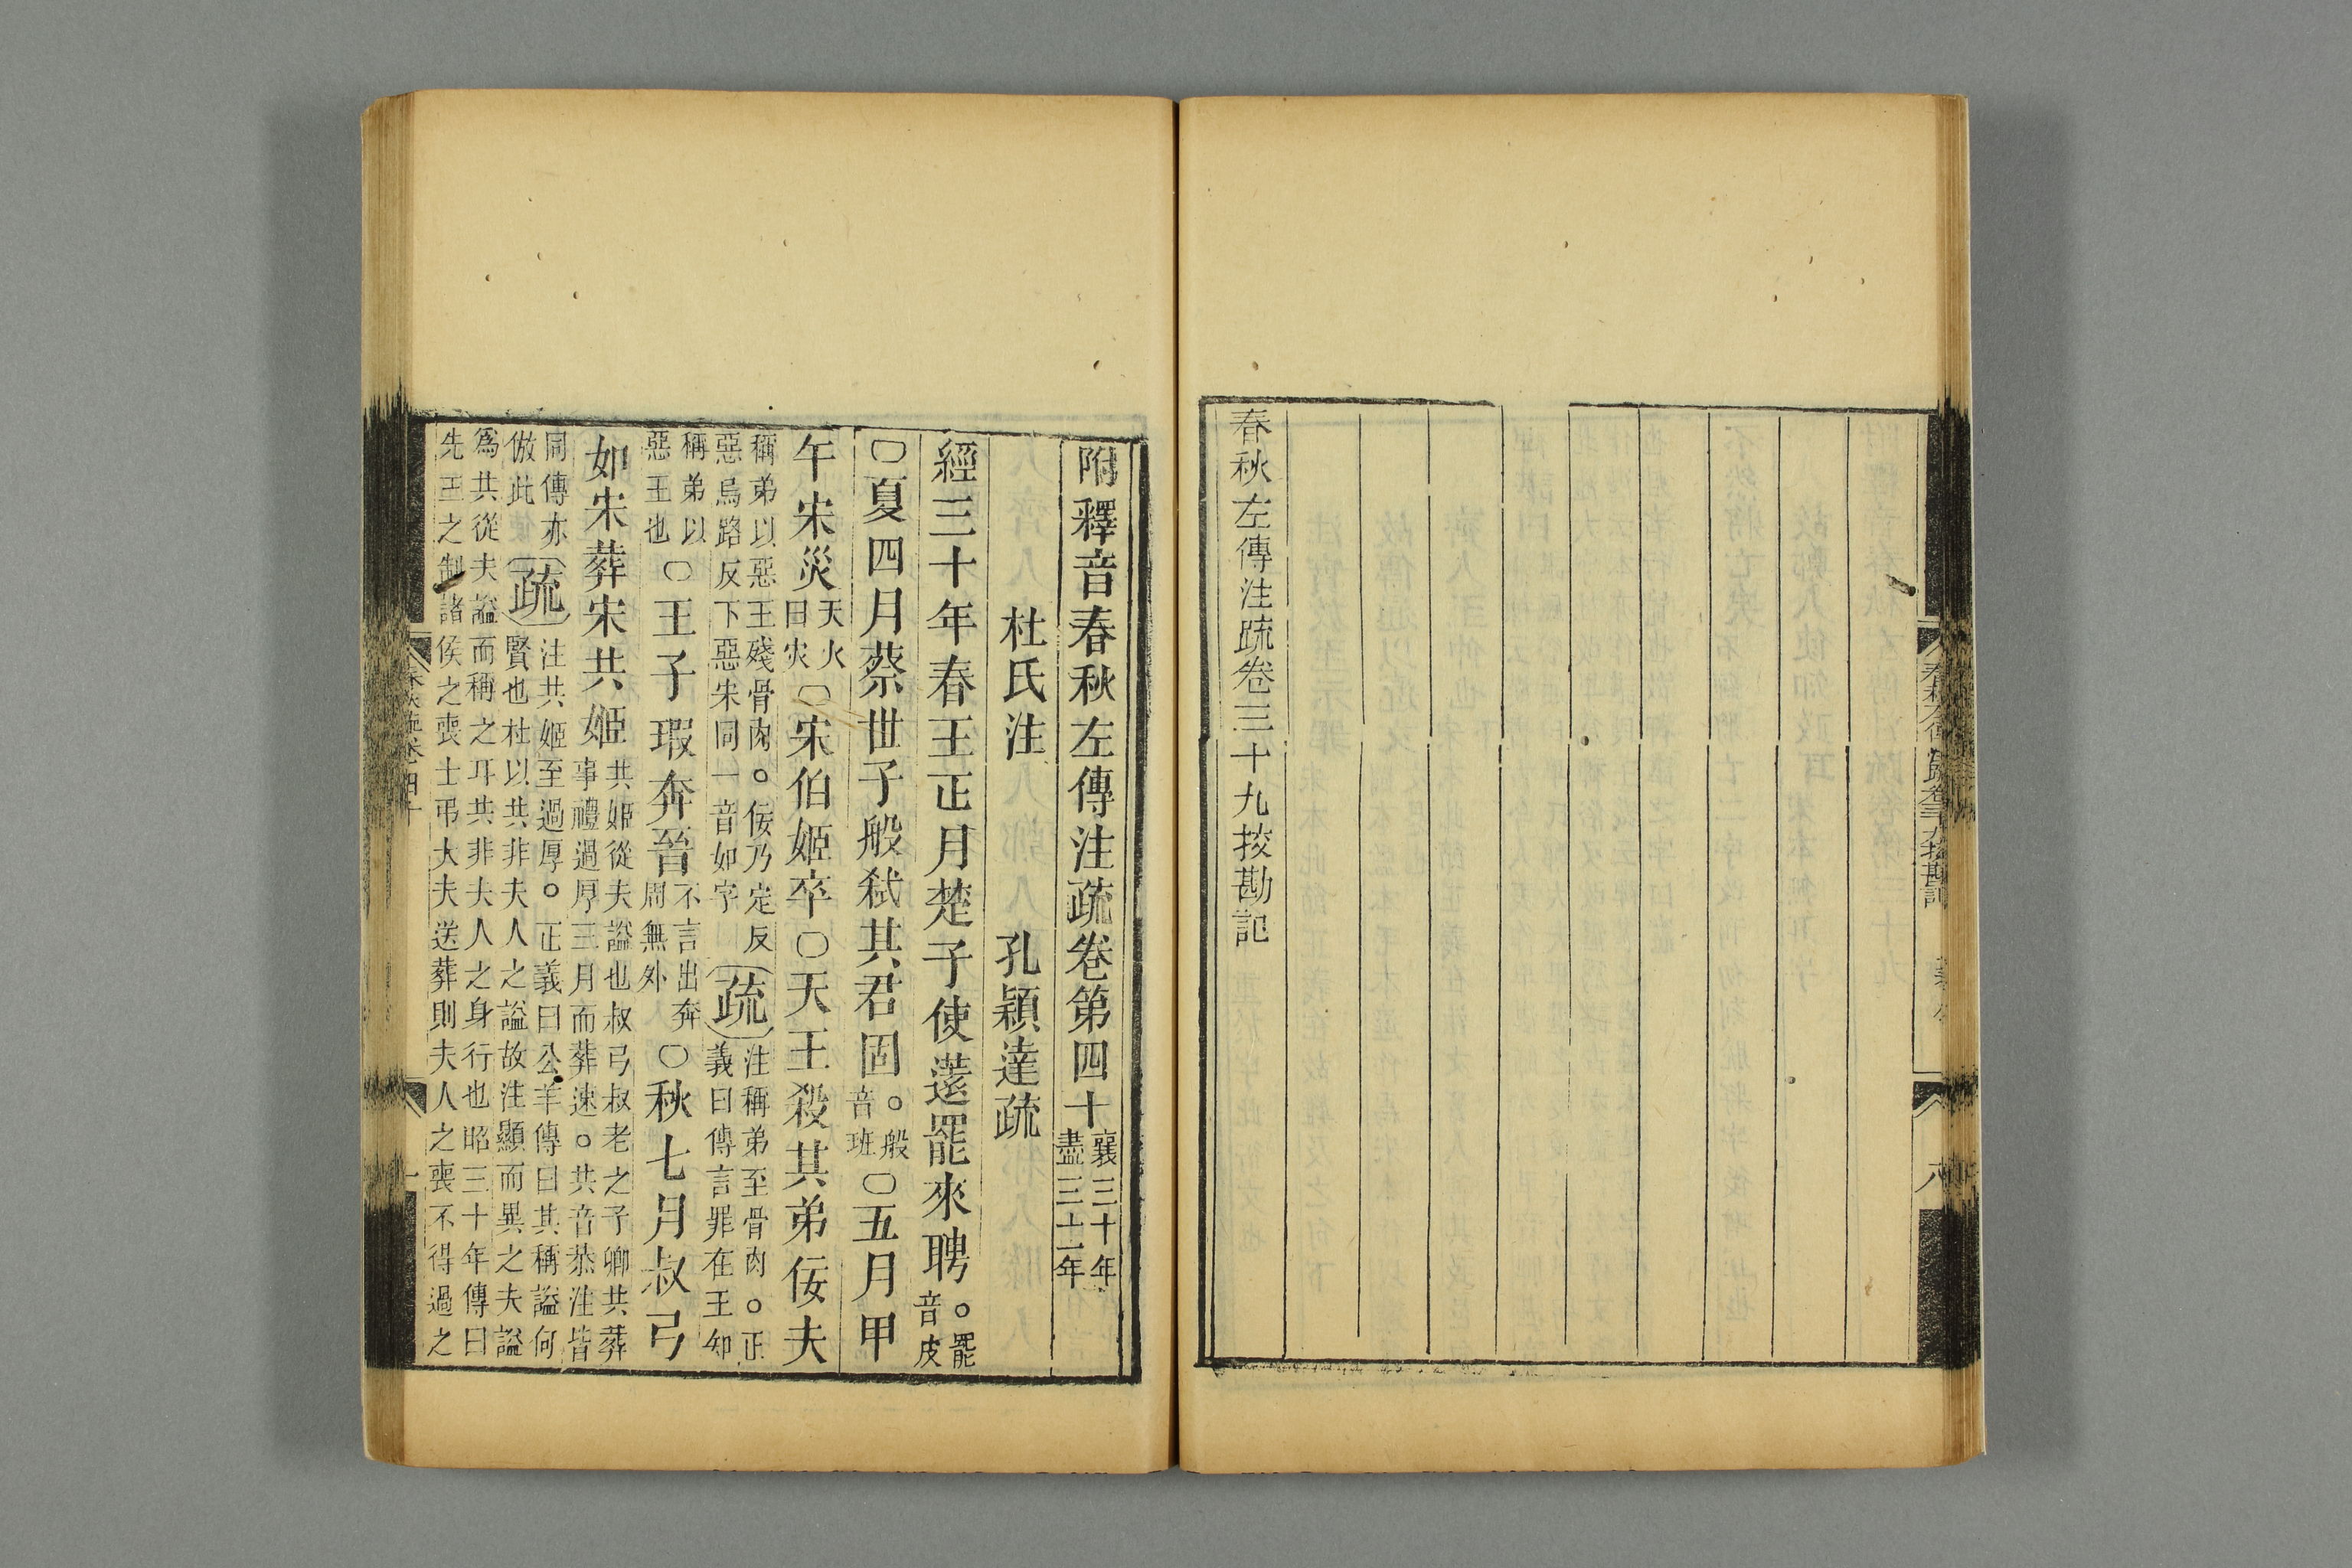 春秋左傳注疏卷三十九挍勘記
附釋音春秋左傳注疏卷第四十 襄三十年
盡三十一年
杜氏注 孔穎達疏
經三十年春王正月楚子使薳罷來聘。罷
音皮
〇夏四月蔡世子般弒其君固。般
音班〇五月甲
午宋災天火
曰災〇宋伯姬卒〇天王殺其弟佞夫
稱弟以惡王殘骨肉。佞乃定反
惡烏路反下惡宋同一音如字
疏注稱弟至骨肉。正
義曰傳言罪在王知
稱弟以
惡王也〇王子瑕奔晉不言出奔
周無外〇秋七月叔弓
如宋葬宋共姬共姬從夫謚也叔弓叔老之子卿共葬
事禮過厚三月而葬速。共音恭注皆
同傳亦
倣此疏注共姬至過厚。正義曰公羊傳曰其稱謚何
賢也杜以共非夫人之謚故注顯而異之夫謚
為共從夫謚而稱之耳共非夫人之身行也昭三十年傳曰
先王之制諸侯之喪士弔大夫送葬則夫人之喪不得過之